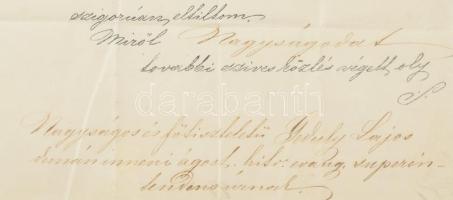 szigorúan eltiltom.
Miről Nagyságodat
további szives közlés végett oly
S.
Nagyságos és főtiszteletű Geduly Lajos
dunáninneni ágost. hitv. evang. superin-
tendens úrnak.
darabanth